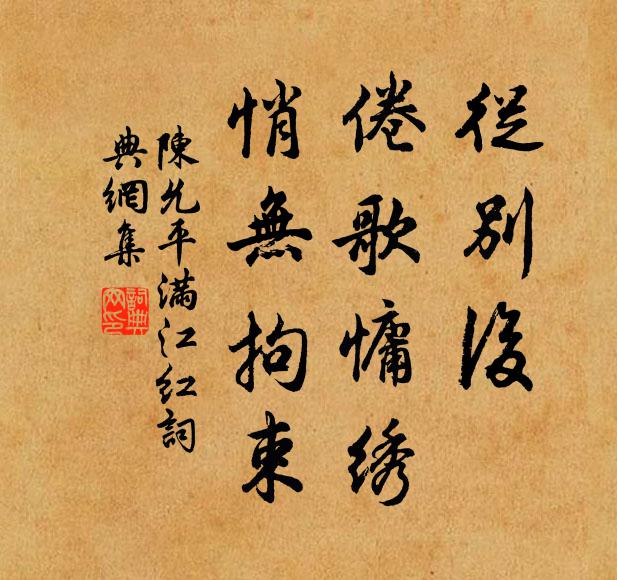 從別後
倦歌慵綉
悄無拘束
陳允平滿江紅詞
典網集
詞典
网印